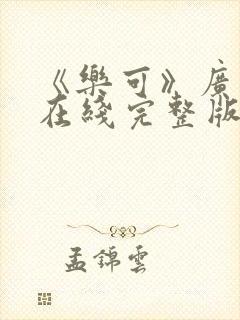 《樂可》廣
在綫完整版
孟錦雲